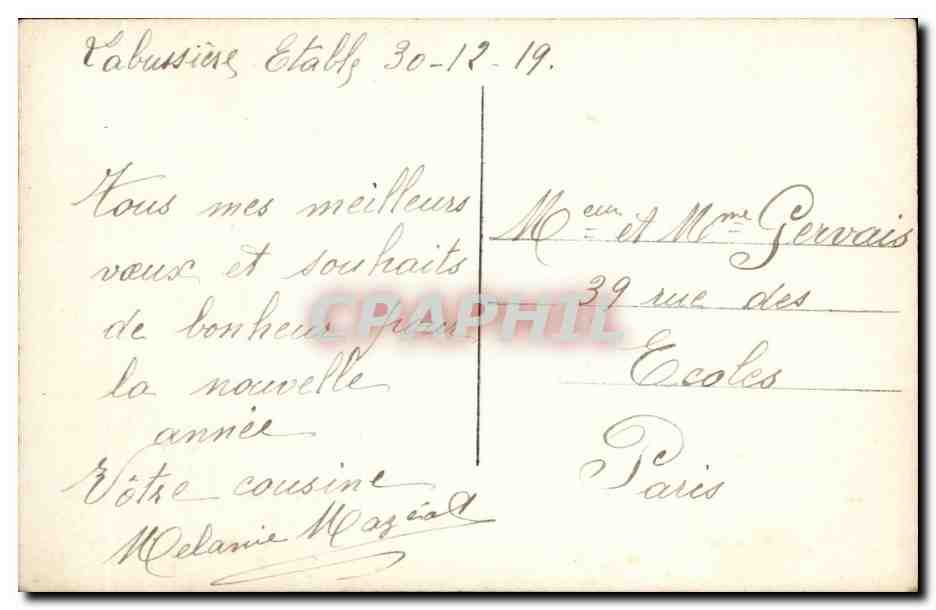 Labussière Etable 30-12-19.
Tous mes meilleurs
vœux et souhaits
de bonheur pour
la nouvelle
année
Vôtre cousine
Melanie
Meur et Mme Gervais
39 rue des
Ecoles
Paris
CPAPHIL